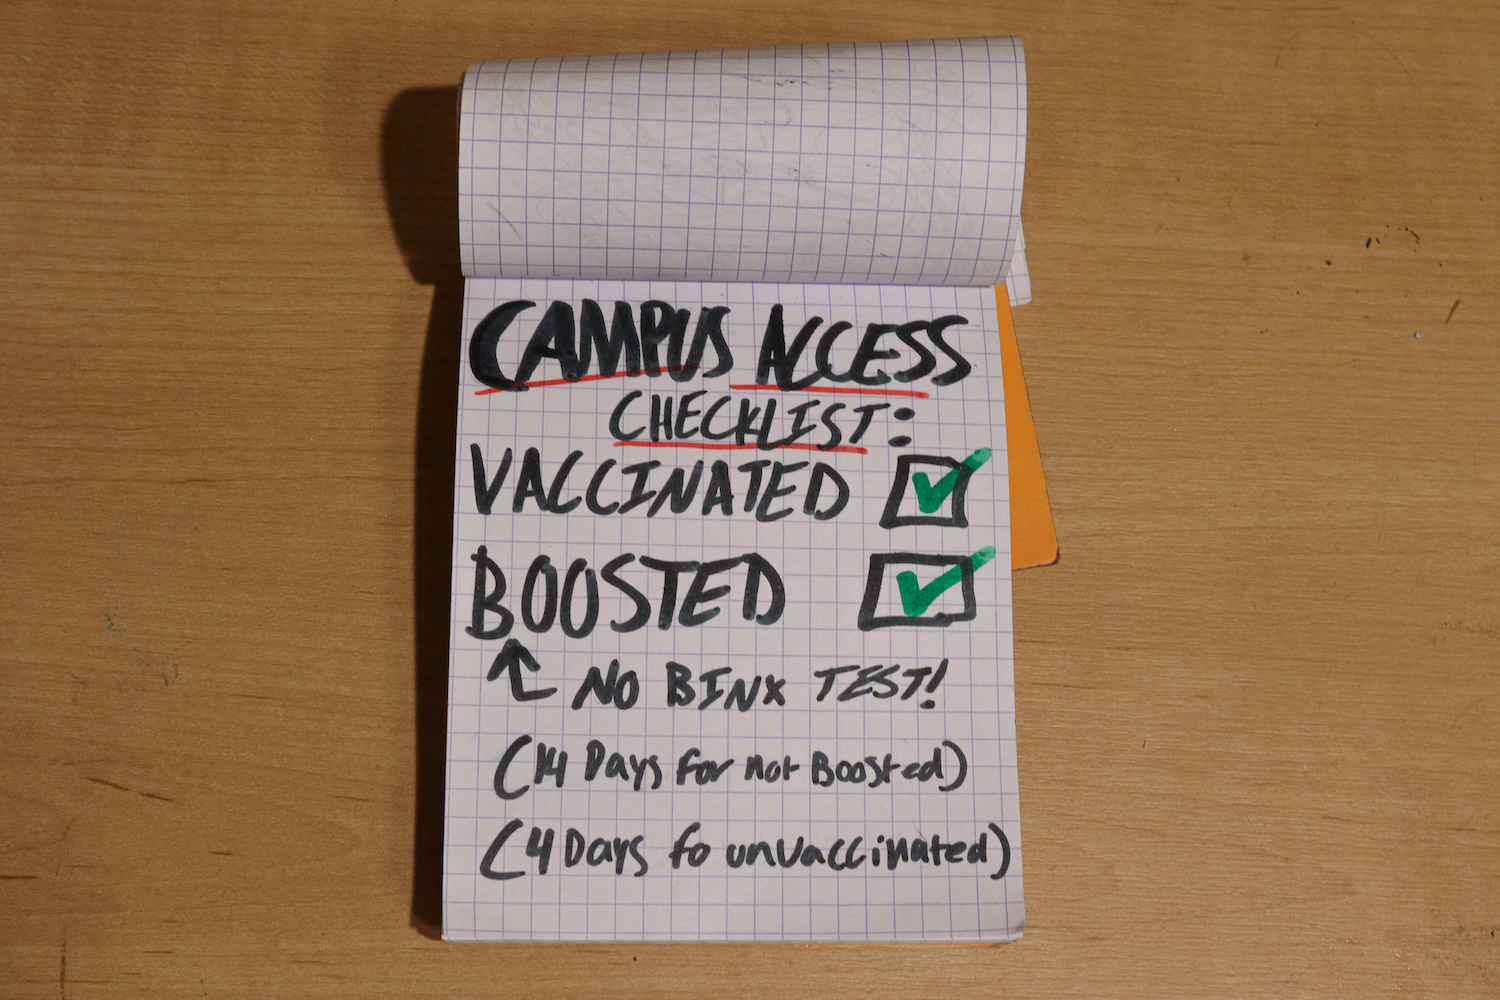 CAMPUS ACCESS
CHECKLIST:
VACCINATED
BOOSTED
NO BINX TEST!
(14 Days for not Boosted)
(4 Days fo unvaccinated)